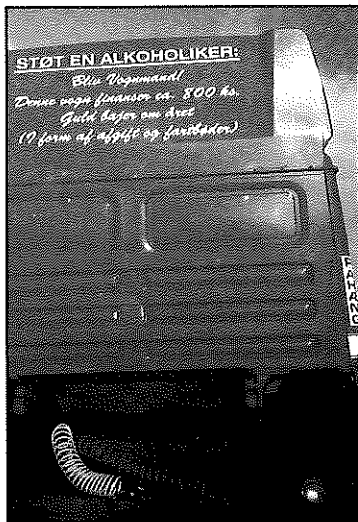 STØT EN ALKOHOLIKER:
Bliv Vognmand!
Denne vogn finanser ca. 800 ks.
Guld bajer om året
(I form af afgift og fartbøder)
PÅHÆNG